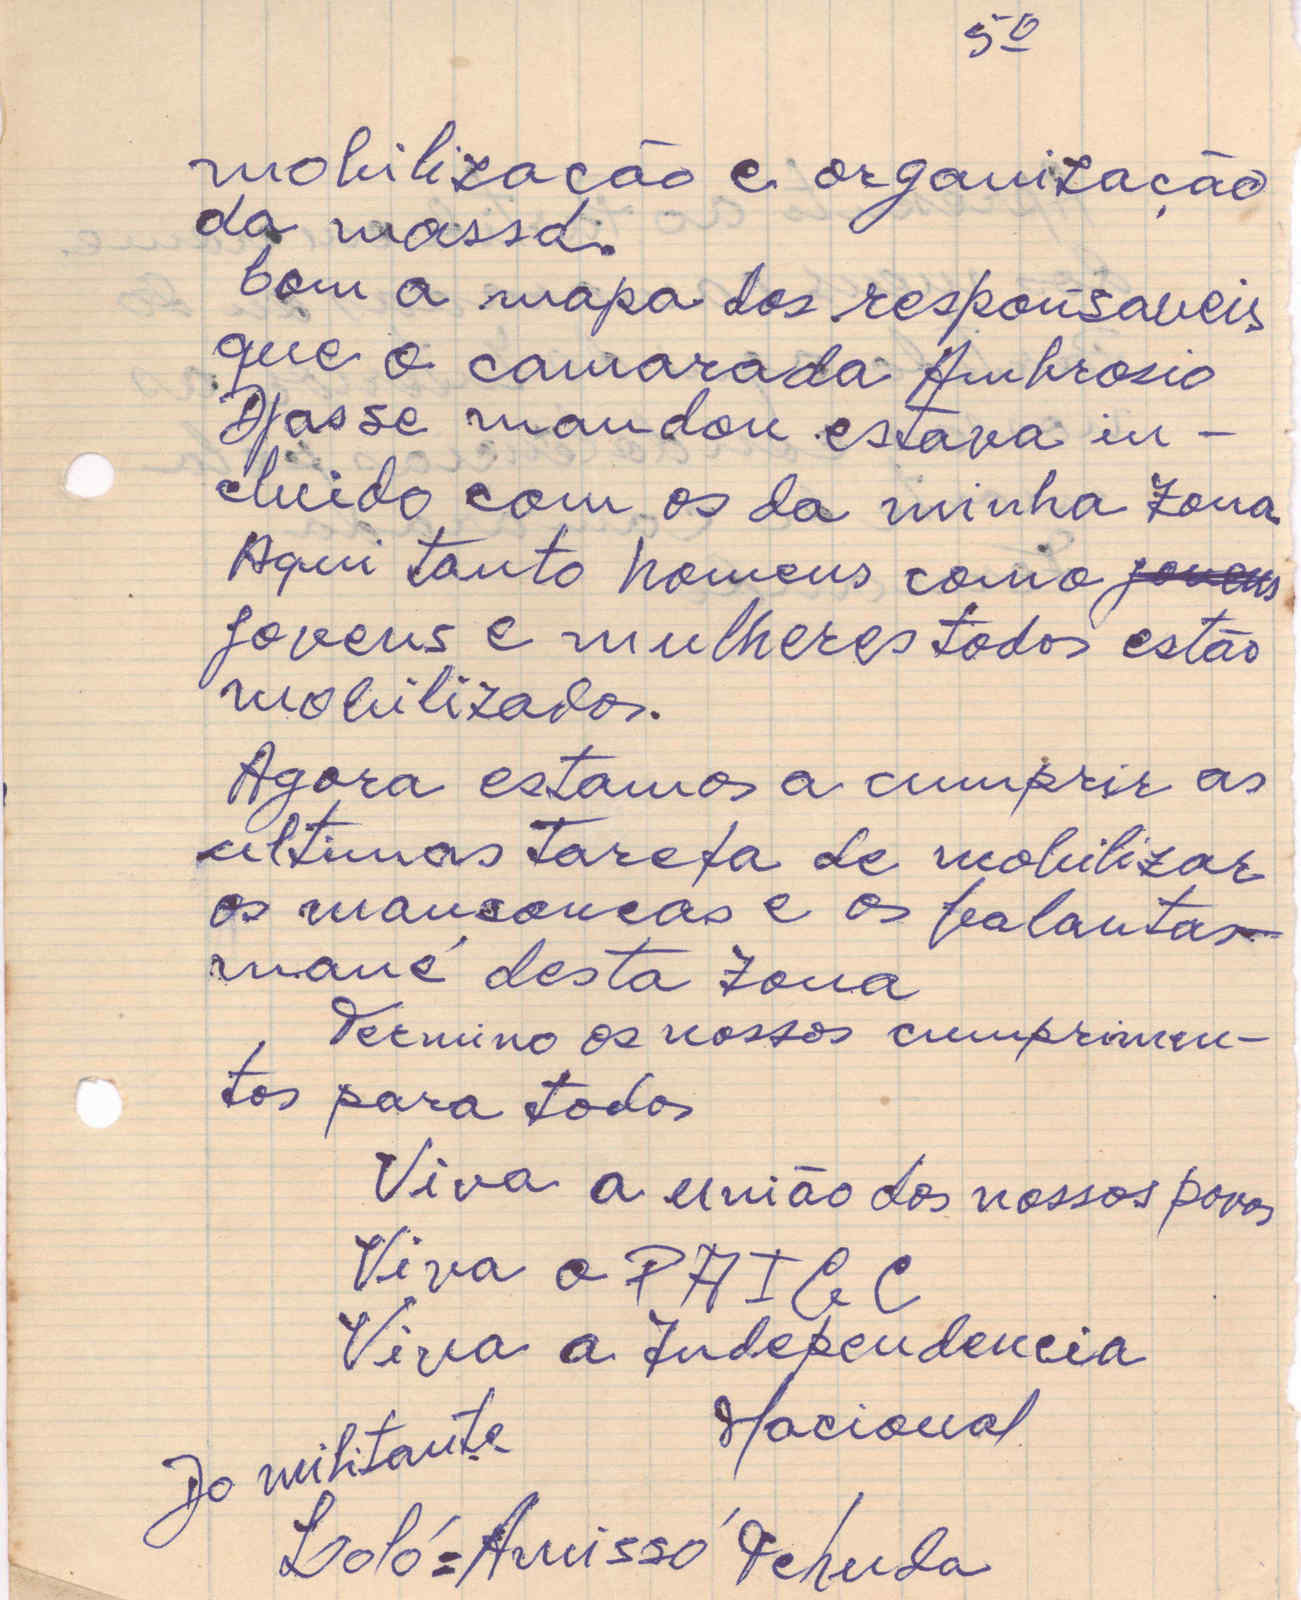 5º
mobilização e organização
da massa.
bom a mapa dos responsaveis
que o camarada Ambrosio
Djasse mandou estava in-
cluido com os da minha zona
Aqui tanto homens como jovens
jovens e mulheres todos estão
mobilizados.
Agora estamos a cumprir as
ultimas tarefa de mobilizar
os mansoncas e os balantas-
mané desta zona
Termino os nossos cumprimen-
tos para todos
Viva a união dos nossos povos
Viva o PAIGC
Viva a Independencia
Nacional
Do militante
Loló=Amissó Tchuda